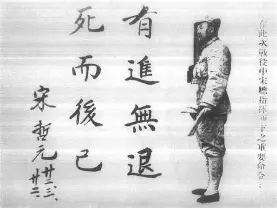 此次戰役中宋總指揮下之重要命令
有進無退
死而後已
宋哲元